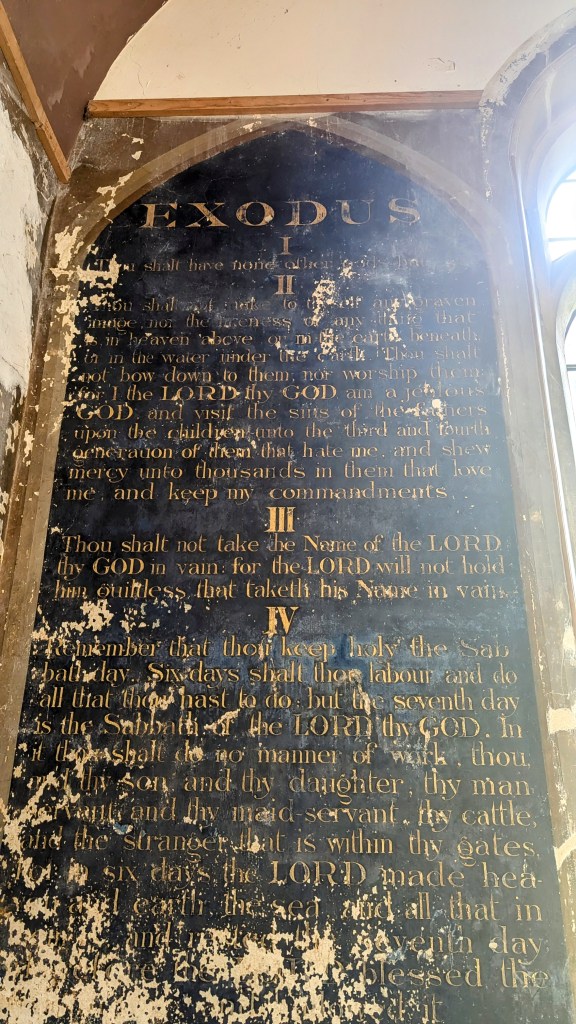 EXODUS
I
Thou shalt have none other gods but
II
Thou shalt not make to thyself any graven
image, nor the likeness of any thing that
is in heaven above or in the earth beneath
or in the water under the earth. Thou shalt
not bow down to them, nor worship them:
for I the LORD thy GOD am a jealous
GOD and visit the sins of the fathers
upon the children unto the third and fourth
generation of them that hate me, and shew
mercy unto thousands in them that love
me, and keep my commandments.
III
Thou shalt not take the Name of the LORD
thy GOD in vain: for the LORD will not hold
him guiltless that taketh his Name in vain.
IV
Remember that thou keep holy the Sab
bath day. Six days shalt thou labour and do
all that thou hast to do; but the seventh day
is the Sabbath of the LORD thy GOD. In
it thou shalt do no manner of work, thou,
and thy son, and thy daughter, thy man
servant, and thy maid-servant, thy cattle,
and the stranger that is within thy gates.
For in six days the LORD made hea-
and earth the sea, and all that in
and rested the seventh day
the blessed the
it